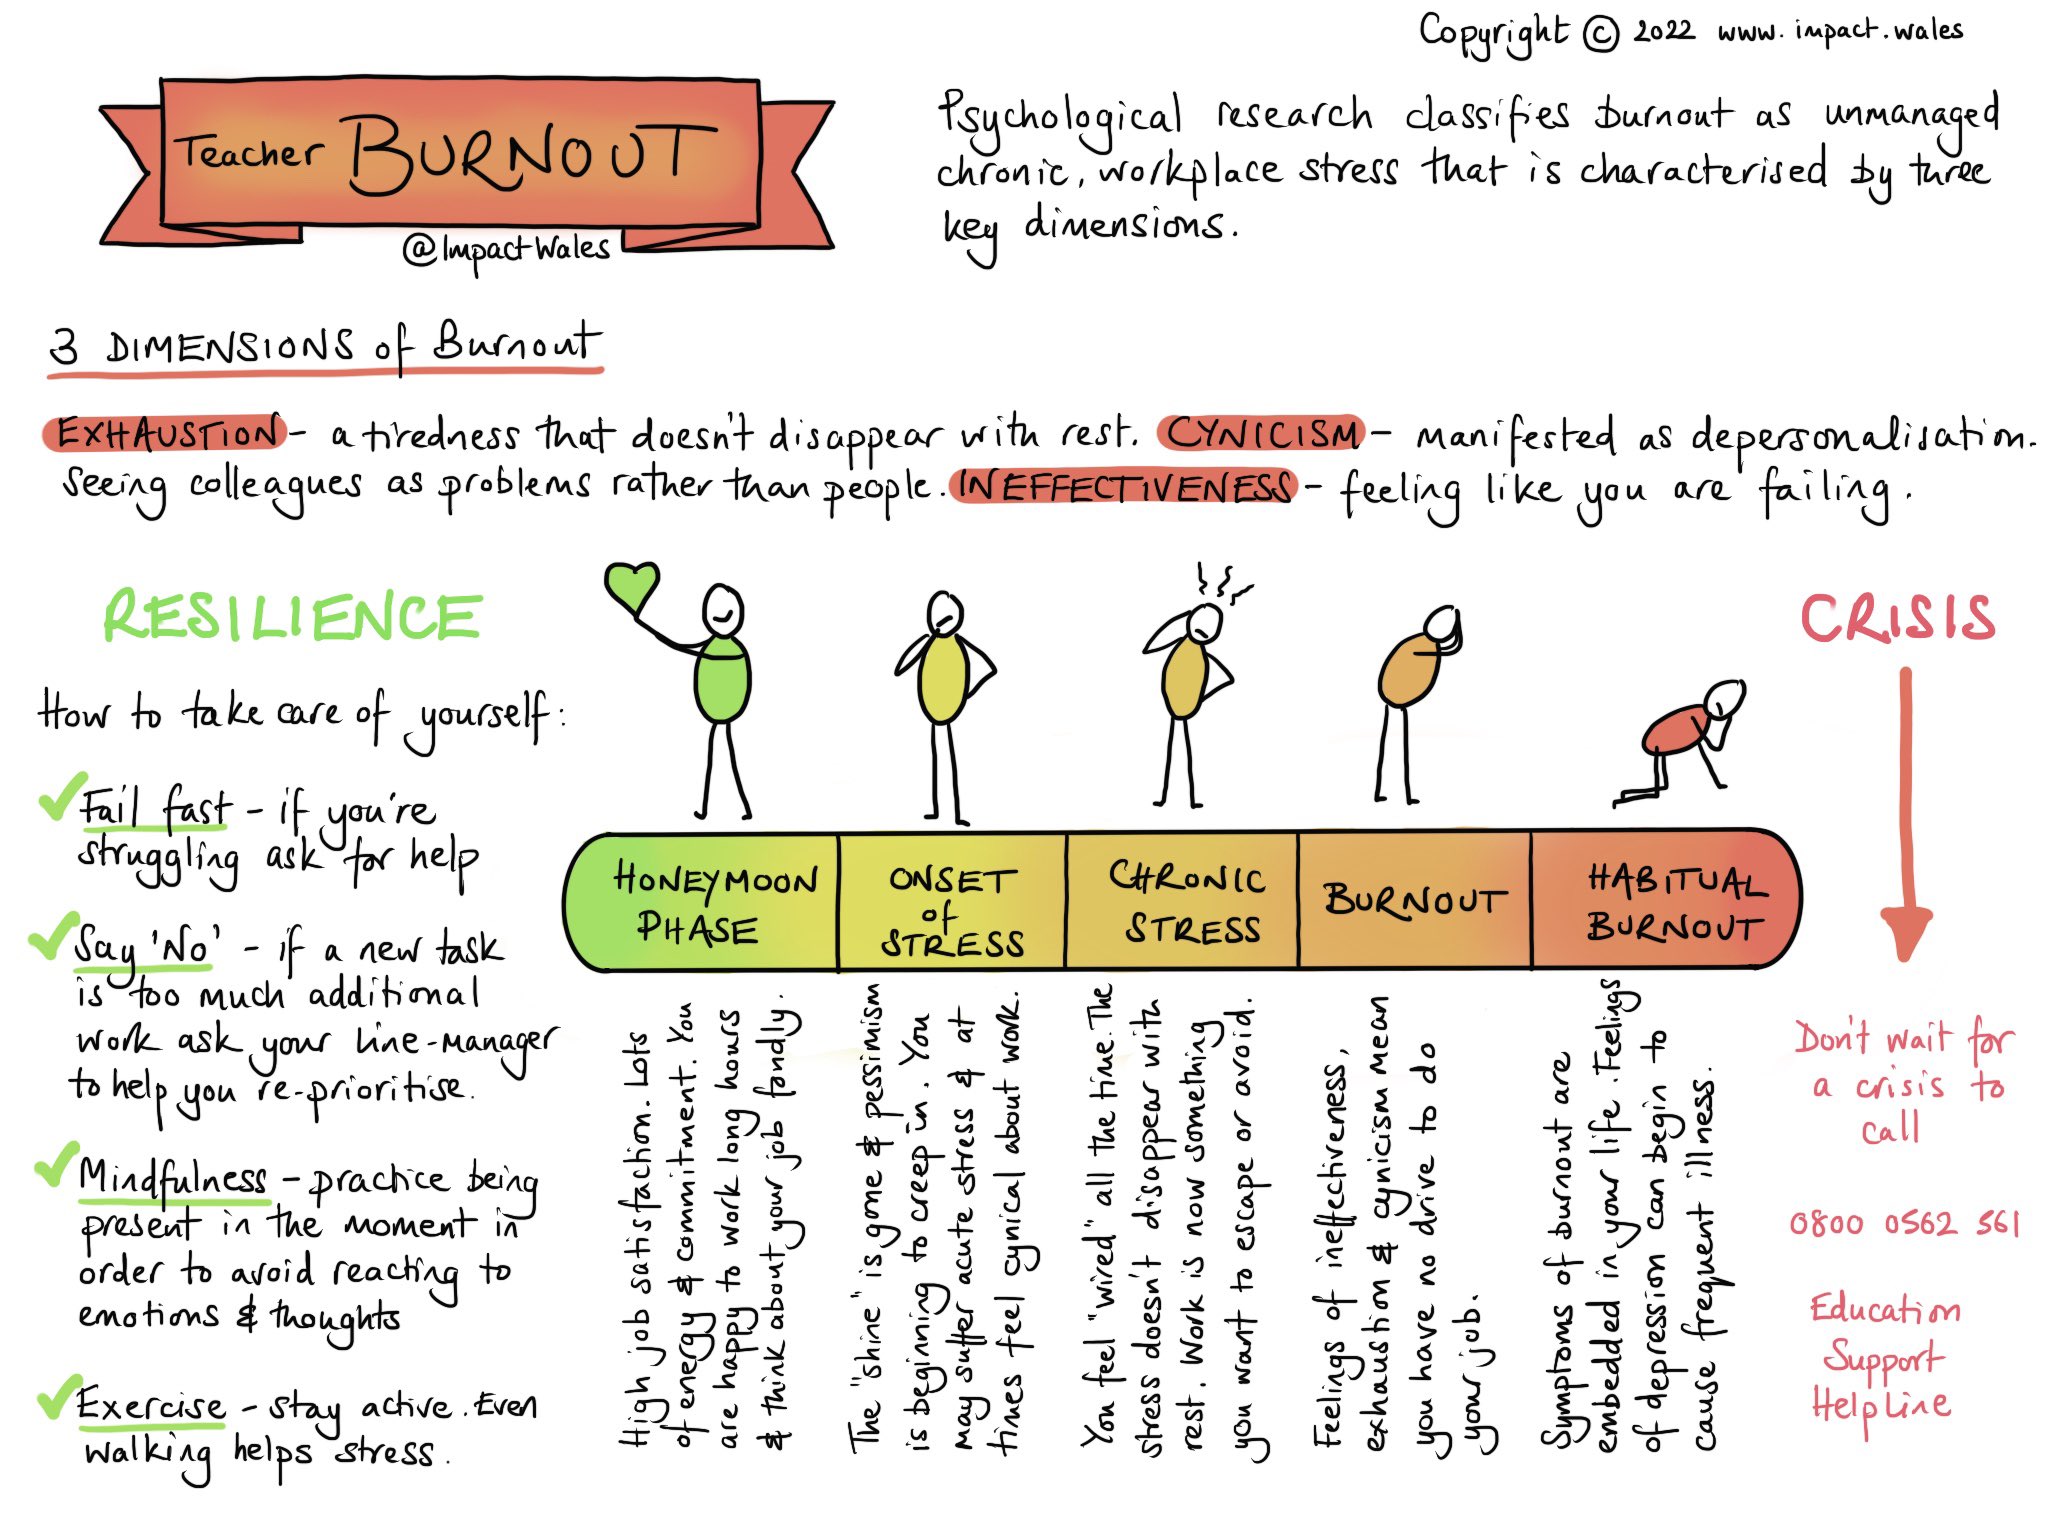 Copyright © 2022 www.impact.wales
Teacher BURNOUT
@ImpactWales
Psychological research classifies burnout as unmanaged
chronic, workplace stress that is characterised by three
key dimensions.
3 DIMENSIONS of Burnout
EXHAUSTION - a tiredness that doesn't disappear with rest. CYNICISM - manifested as depersonalisation.
Seeing colleagues as problems rather than people. INEFFECTIVENESS - feeling like you are failing.
RESILIENCE
How to take care of yourself:
Fail fast - if you're
struggling ask for help
Say 'No' - if a new task
is too much additional
work ask your line-manager
to help you re-prioritise.
Mindfulness - practice being
present in the moment in
order to avoid reacting to
emotions & thoughts
Exercise - stay active. Even
walking helps stress.
HONEYMOON
PHASE
ONSET
of
STRESS
CHRONIC
STRESS
BURNOUT
HABITUAL
BURNOUT
High job satisfaction. Lots
of energy & commitment. You
are happy to work long hours
& think about your job fondly.
The "shine" is gone & pessimism
is beginning to creep in. You
may suffer acute stress & at
times feel cynical about work.
You feel "wired" all the time. The
stress doesn't disappear with
rest. Work is now something
you want to escape or avoid.
Feelings of ineffectiveness,
exhaustion & cynicism mean
you have no drive to do
your job.
Symptoms of burnout are
embedded in your life. Feelings
of depression can begin to
cause frequent illness.
CRISIS
Don't wait for
a crisis to
call
0800 0562 561
Education
Support
Helpline